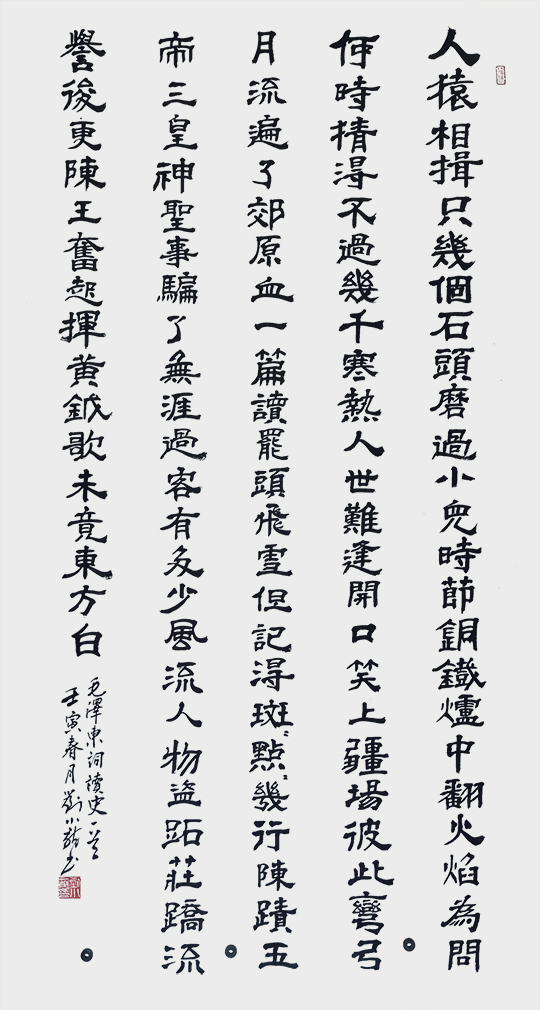 人猿相揖只幾個石頭磨過小兒時節銅鐵爐中翻火焰為問
何時猜得不過幾千寒熱人世難逢開口笑上疆場彼此彎弓
月流遍了郊原血一篇讀罷頭飛雪但記得斑〻點〻幾行陳蹟五
帝三皇神聖事騙了無涯過客有多少風流人物盜跖莊蹻流
譽後更陳王奮起揮黃鉞歌未竟東方白
毛澤東詞讀史一首
壬寅春月劉小龍書